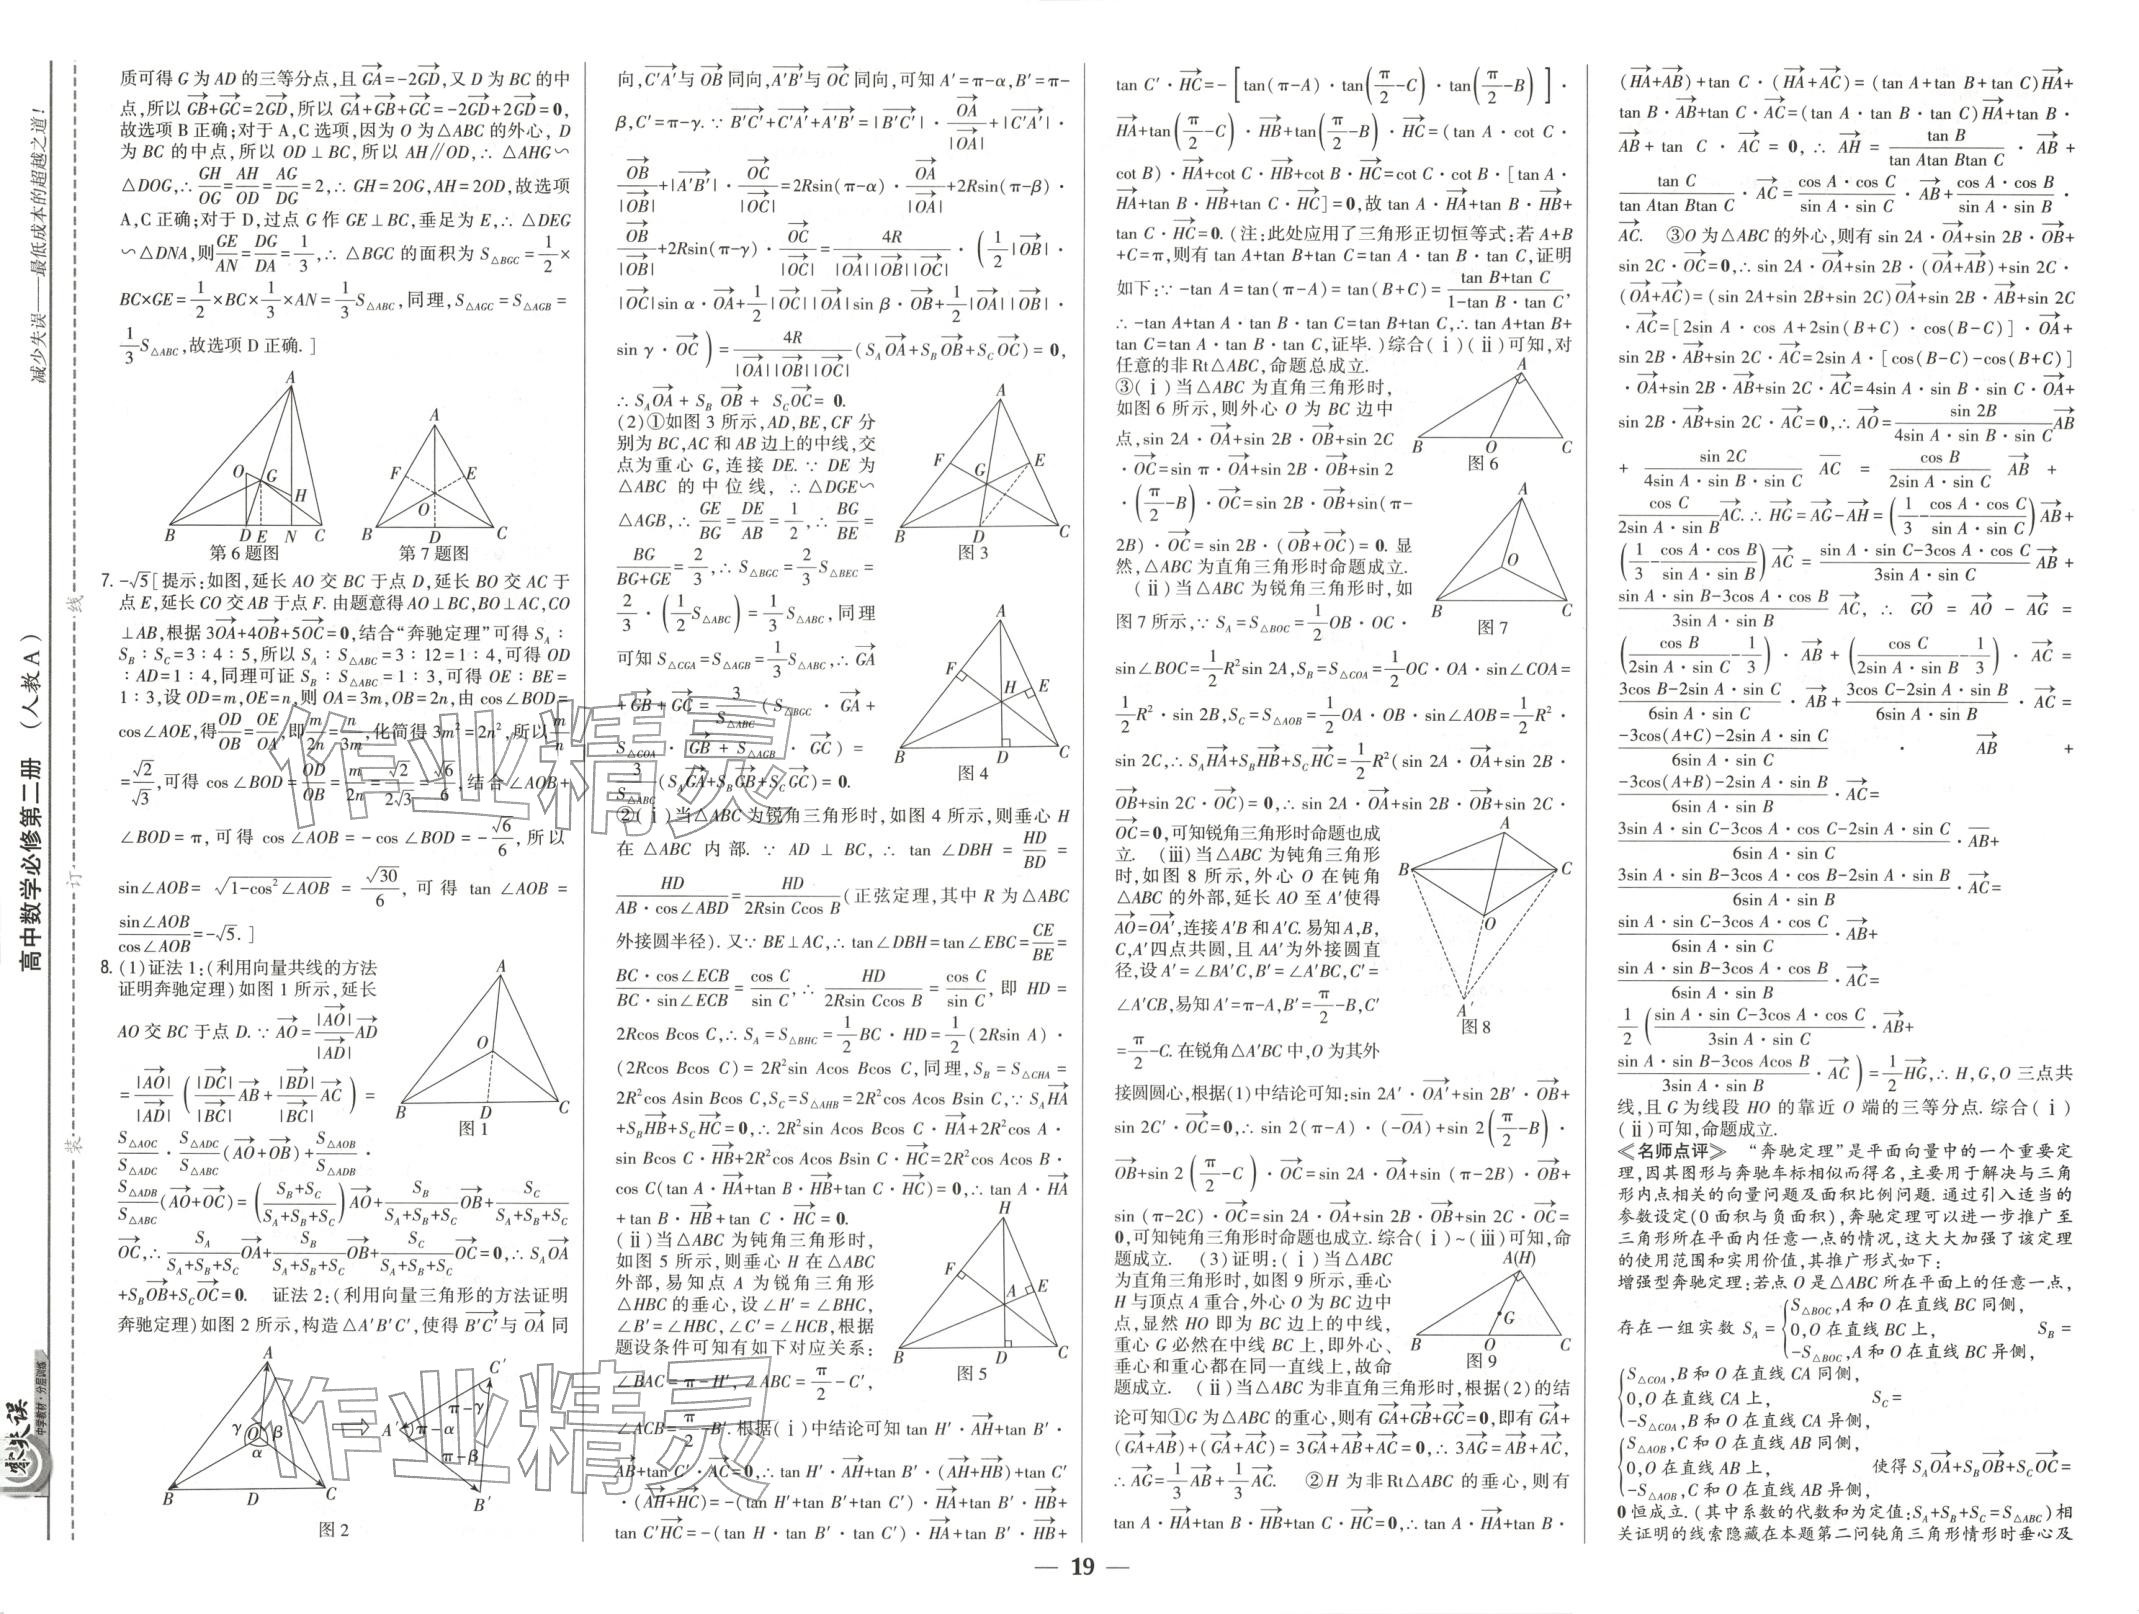 减少失误——最低成本的超越之道!
高中数学必修第二册 (人教A)
装 订 线
质可得 G 为 AD 的三等分点,且 GA=-2GD,又 D 为 BC 的中
点,所以 GB+GC=2GD,所以 GA+GB+GC=-2GD+2GD=0,
故选项 B 正确;对于 A,C 选项,因为 O 为△ABC 的外心, D
为 BC 的中点,所以 OD⊥BC,所以 AH∥OD,∴ △AHG∽
△DOG,∴ GH/OG=AH/OD=AG/DG=2,∴ GH=2OG,AH=2OD,故选项
A,C 正确;对于 D,过点 G 作 GE⊥BC,垂足为 E,∴ △DEG
∽△DNA,则GE/AN=DG/DA=1/3,∴ △BGC 的面积为 S△BGC=1/2×
BC×GE=1/2×BC×1/3×AN=1/3S△ABC,同理,S△AGC=S△AGB=
1/3S△ABC,故选项 D 正确.]
第 6 题图
第 7 题图
7. -√5[提示:如图,延长 AO 交 BC 于点 D,延长 BO 交 AC 于
点 E,延长 CO 交 AB 于点 F. 由题意得 AO⊥BC,BO⊥AC,CO
⊥AB,根据 3OA+4OB+5OC=0,结合“奔驰定理”可得 SA∶
SB∶SC=3∶4∶5,所以 SA∶S△ABC=3∶12=1∶4,可得 OD
∶AD=1∶4,同理可证 SB∶S△ABC=1∶3,可得 OE∶BE=
1∶3,设 OD=m,OE=n,则 OA=3m,OB=2n,由 cos∠BOD=
cos∠AOE,得OD/OB=OE/OA,即m/2n=n/3m,化简得 3m²=2n²,所以m/n
=√2/√3,可得 cos∠BOD=OD/OB=m/2n=√2/2√3=√6/6,结合∠AOB+
∠BOD=π,可得 cos∠AOB=-cos∠BOD=-√6/6,所以
sin∠AOB=√(1-cos²∠AOB)=√30/6,可得 tan∠AOB=
sin∠AOB/cos∠AOB=-√5.]
8. (1)证法 1:(利用向量共线的方法
证明奔驰定理)如图 1 所示,延长
AO 交 BC 于点 D.∵ AO=|AO|/|AD|AD
=|AO|/|AD|(|DC|/|BC|AB+|BD|/|BC|AC)=
图 1
S△AOC/S△ADC·S△ADC/S△ABC(AO+OB)+S△AOB/S△ADB·
S△ADB/S△ABC(AO+OC)=((SB+SC)/(SA+SB+SC))AO+SB/(SA+SB+SC)OB+SC/(SA+SB+SC)
OC,∴ SA/(SA+SB+SC)OA+SB/(SA+SB+SC)OB+SC/(SA+SB+SC)OC=0,∴ SAOA
+SBOB+SCOC=0. 证法 2:(利用向量三角形的方法证明
奔驰定理)如图 2 所示,构造△A′B′C′,使得 B′C′与 OA 同
图 2
向,C′A′与 OB 同向,A′B′与 OC 同向,可知 A′=π-α,B′=π-
β,C′=π-γ.∵ B′C′+C′A′+A′B′=|B′C′|·OA/|OA|+|C′A′|·
OB/|OB|+|A′B′|·OC/|OC|=2Rsin(π-α)·OA/|OA|+2Rsin(π-β)·
OB/|OB|+2Rsin(π-γ)·OC/|OC|=4R/(|OA||OB||OC|)·(1/2|OB|·
|OC|sin α·OA+1/2|OC||OA|sin β·OB+1/2|OA||OB|·
sin γ·OC)=4R/(|OA||OB||OC|)(SAOA+SBOB+SCOC)=0,
∴ SAOA+SBOB+SCOC=0.
(2)①如图 3 所示,AD,BE,CF 分
别为 BC,AC 和 AB 边上的中线,交
点为重心 G,连接 DE.∵ DE 为
△ABC 的中位线,∴ △DGE∽
△AGB,∴ GE/BG=DE/AB=1/2,∴ BG/BE=
BG/(BG+GE)=2/3,∴ S△BGC=2/3S△BEC=
2/3·(1/2S△ABC)=1/3S△ABC,同理
可知 S△CGA=S△AGB=1/3S△ABC,∴ GA
+GB+GC=3/S△ABC(S△BGC·GA+
S△COA·GB+S△AGB·GC)=
3/S△ABC(SAGA+SBGB+SCGC)=0.
图 3
图 4
②(ⅰ)当△ABC 为锐角三角形时,如图 4 所示,则垂心 H
在△ABC 内部.∵ AD⊥BC,∴ tan∠DBH=HD/BD=
HD/(AB·cos∠ABD)=HD/(2Rsin Ccos B)(正弦定理,其中 R 为△ABC
外接圆半径).又∵ BE⊥AC,∴ tan∠DBH=tan∠EBC=CE/BE=
BC·cos∠ECB/(BC·sin∠ECB)=cos C/sin C,∴ HD/(2Rsin Ccos B)=cos C/sin C,即 HD=
2Rcos Bcos C,∴ SA=S△BHC=1/2BC·HD=1/2(2Rsin A)·
(2Rcos Bcos C)=2R²sin Acos Bcos C,同理,SB=S△CHA=
2R²cos Asin Bcos C,SC=S△AHB=2R²cos Acos Bsin C,∵ SAHA
+SBHB+SCHC=0,∴ 2R²sin Acos Bcos C·HA+2R²cos A·
sin Bcos C·HB+2R²cos Acos Bsin C·HC=2R²cos Acos B·
cos C(tan A·HA+tan B·HB+tan C·HC)=0,∴ tan A·HA
+tan B·HB+tan C·HC=0.
(ⅱ)当△ABC 为钝角三角形时,
如图 5 所示,则垂心 H 在△ABC
外部,易知点 A 为锐角三角形
△HBC 的垂心,设∠H′=∠BHC,
∠B′=∠HBC,∠C′=∠HCB,根据
题设条件可知有如下对应关系:
∠BAC=π-H′,∠ABC=π/2-C′,
图 5
∠ACB=π/2-B′.根据(ⅰ)中结论可知 tan H′·AH+tan B′·
AB+tan C′·AC=0,∴ tan H′·AH+tan B′·(AH+HB)+tan C′
·(AH+HC)=-(tan H′+tan B′+tan C′)·HA+tan B′·HB+
tan C′HC=-(tan H·tan B′·tan C′)·HA+tan B′·HB+
tan C′·HC=-[tan(π-A)·tan(π/2-C)·tan(π/2-B)]·
HA+tan(π/2-C)·HB+tan(π/2-B)·HC=(tan A·cot C·
cot B)·HA+cot C·HB+cot B·HC=cot C·cot B·[tan A·
HA+tan B·HB+tan C·HC]=0,故 tan A·HA+tan B·HB+
tan C·HC=0.(注:此处应用了三角形正切恒等式:若 A+B
+C=π,则有 tan A+tan B+tan C=tan A·tan B·tan C,证明
如下:∵ -tan A=tan(π-A)=tan(B+C)=(tan B+tan C)/(1-tan B·tan C),
∴ -tan A+tan A·tan B·tan C=tan B+tan C,∴ tan A+tan B+
tan C=tan A·tan B·tan C,证毕.)综合(ⅰ)(ⅱ)可知,对
任意的非 Rt△ABC,命题总成立.
③(ⅰ)当△ABC 为直角三角形时,
如图 6 所示,则外心 O 为 BC 边中
点,sin 2A·OA+sin 2B·OB+sin 2C
·OC=sin π·OA+sin 2B·OB+sin 2
·(π/2-B)·OC=sin 2B·OB+sin(π-
2B)·OC=sin 2B·(OB+OC)=0.显
然,△ABC 为直角三角形时命题成立.
图 6
(ⅱ)当△ABC 为锐角三角形时,如
图 7 所示,∵ SA=S△BOC=1/2OB·OC·
图 7
sin∠BOC=1/2R²sin 2A,SB=S△COA=1/2OC·OA·sin∠COA=
1/2R²·sin 2B,SC=S△AOB=1/2OA·OB·sin∠AOB=1/2R²·
sin 2C,∴ SAHA+SBHB+SCHC=1/2R²(sin 2A·OA+sin 2B·
OB+sin 2C·OC)=0,∴ sin 2A·OA+sin 2B·OB+sin 2C·
OC=0,可知锐角三角形时命题也成
立. (ⅲ)当△ABC 为钝角三角形
时,如图 8 所示,外心 O 在钝角
△ABC 的外部,延长 AO 至 A′使得
AO=OA′,连接 A′B 和 A′C.易知 A,B,
C,A′四点共圆,且 AA′为外接圆直
径,设 A′=∠BA′C,B′=∠A′BC,C′=
∠A′CB,易知 A′=π-A,B′=π/2-B,C′
=π/2-C.在锐角△A′BC 中,O 为其外
图 8
接圆圆心,根据(1)中结论可知:sin 2A′·OA′+sin 2B′·OB+
sin 2C′·OC=0,∴ sin 2(π-A)·(-OA)+sin 2(π/2-B)·
OB+sin 2(π/2-C)·OC=sin 2A·OA+sin (π-2B)·OB+
sin (π-2C)·OC=sin 2A·OA+sin 2B·OB+sin 2C·OC=
0,可知钝角三角形时命题也成立.综合(ⅰ)~(ⅲ)可知,命
题成立. (3)证明:(ⅰ)当△ABC
为直角三角形时,如图 9 所示,垂心
H 与顶点 A 重合,外心 O 为 BC 边中
点,显然 HO 即为 BC 边上的中线,
重心 G 必然在中线 BC 上,即外心、
垂心和重心都在同一直线上,故命
图 9
题成立. (ⅱ)当△ABC 为非直角三角形时,根据(2)的结
论可知①G 为△ABC 的重心,则有 GA+GB+GC=0,即有 GA+
(GA+AB)+(GA+AC)=3GA+AB+AC=0,∴ 3AG=AB+AC,
∴ AG=1/3AB+1/3AC. ②H 为非 Rt△ABC 的垂心,则有
tan A·HA+tan B·HB+tan C·HC=0,∴ tan A·HA+tan B·
(HA+AB)+tan C·(HA+AC)=(tan A+tan B+tan C)HA+
tan B·AB+tan C·AC=(tan A·tan B·tan C)HA+tan B·
AB+tan C·AC=0,∴ AH=tan B/(tan Atan Btan C)·AB+
tan C/(tan Atan Btan C)·AC=(cos A·cos C)/(sin A·sin C)·AB+(cos A·cos B)/(sin A·sin B)·
AC. ③O 为△ABC 的外心,则有 sin 2A·OA+sin 2B·OB+
sin 2C·OC=0,∴ sin 2A·OA+sin 2B·(OA+AB)+sin 2C·
(OA+AC)=(sin 2A+sin 2B+sin 2C)OA+sin 2B·AB+sin 2C
·AC=[2sin A·cos A+2sin(B+C)·cos(B-C)]·OA+
sin 2B·AB+sin 2C·AC=2sin A·[cos(B-C)-cos(B+C)]
·OA+sin 2B·AB+sin 2C·AC=4sin A·sin B·sin C·OA+
sin 2B·AB+sin 2C·AC=0,∴ AO=sin 2B/(4sin A·sin B·sin C)AB
+sin 2C/(4sin A·sin B·sin C) AC=cos B/(2sin A·sin C) AB+
cos C/(2sin A·sin B)AC.∴ HG=AG-AH=(1/3-(cos A·cos C)/(sin A·sin C))AB+
(1/3-(cos A·cos B)/(sin A·sin B))AC=(sin A·sin C-3cos A·cos C)/(3sin A·sin C)AB+
(sin A·sin B-3cos A·cos B)/(3sin A·sin B)AC,∴ GO=AO-AG=
(cos B/(2sin A·sin C)-1/3)·AB+(cos C/(2sin A·sin B)-1/3)·AC=
(3cos B-2sin A·sin C)/(6sin A·sin C)·AB+(3cos C-2sin A·sin B)/(6sin A·sin B)·AC=
(-3cos(A+C)-2sin A·sin C)/(6sin A·sin C)·AB+
(-3cos(A+B)-2sin A·sin B)/(6sin A·sin B)·AC=
(3sin A·sin C-3cos A·cos C-2sin A·sin C)/(6sin A·sin C)·AB+
(3sin A·sin B-3cos A·cos B-2sin A·sin B)/(6sin A·sin B)·AC=
(sin A·sin C-3cos A·cos C)/(6sin A·sin C)·AB+
(sin A·sin B-3cos A·cos B)/(6sin A·sin B)·AC=
1/2((sin A·sin C-3cos A·cos C)/(3sin A·sin C)·AB+
(sin A·sin B-3cos Acos B)/(3sin A·sin B)·AC)=1/2HG,∴ H,G,O 三点共
线,且 G 为线段 HO 的靠近 O 端的三等分点.综合(ⅰ)
(ⅱ)可知,命题成立.
《名师点评》 “奔驰定理”是平面向量中的一个重要定
理,因其图形与奔驰车标相似而得名,主要用于解决与三角
形内点相关的向量问题及面积比例问题.通过引入适当的
参数设定(0 面积与负面积),奔驰定理可以进一步推广至
三角形所在平面内任意一点的情况,这大大加强了该定理
的使用范围和实用价值,其推广形式如下:
增强型奔驰定理:若点 O 是△ABC 所在平面上的任意一点,
存在一组实数 SA={S△BOC,A 和 O 在直线 BC 同侧,
0,O 在直线 BC 上,
-S△BOC,A 和 O 在直线 BC 异侧,
SB=
{S△COA,B 和 O 在直线 CA 同侧,
0,O 在直线 CA 上,
-S△COA,B 和 O 在直线 CA 异侧,
SC=
{S△AOB,C 和 O 在直线 AB 同侧,
0,O 在直线 AB 上,
-S△AOB,C 和 O 在直线 AB 异侧,
使得 SAOA+SBOB+SCOC=
0 恒成立.(其中系数的代数和为定值:SA+SB+SC=S△ABC)相
关证明的线索隐藏在本题第二问钝角三角形情形时垂心及
— 19 —
作业精灵
作业精灵